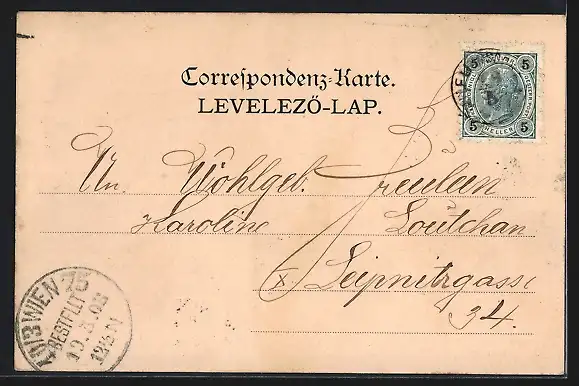 Correspondenz-Karte.
LEVELEZŐ-LAP.
5 5
5 HELLER 5
An Wohlgeb. Freulein
Karoline Loutchan
X Leipnitzgasse
34.
WIEN 75
BESTELLT
19.3.03